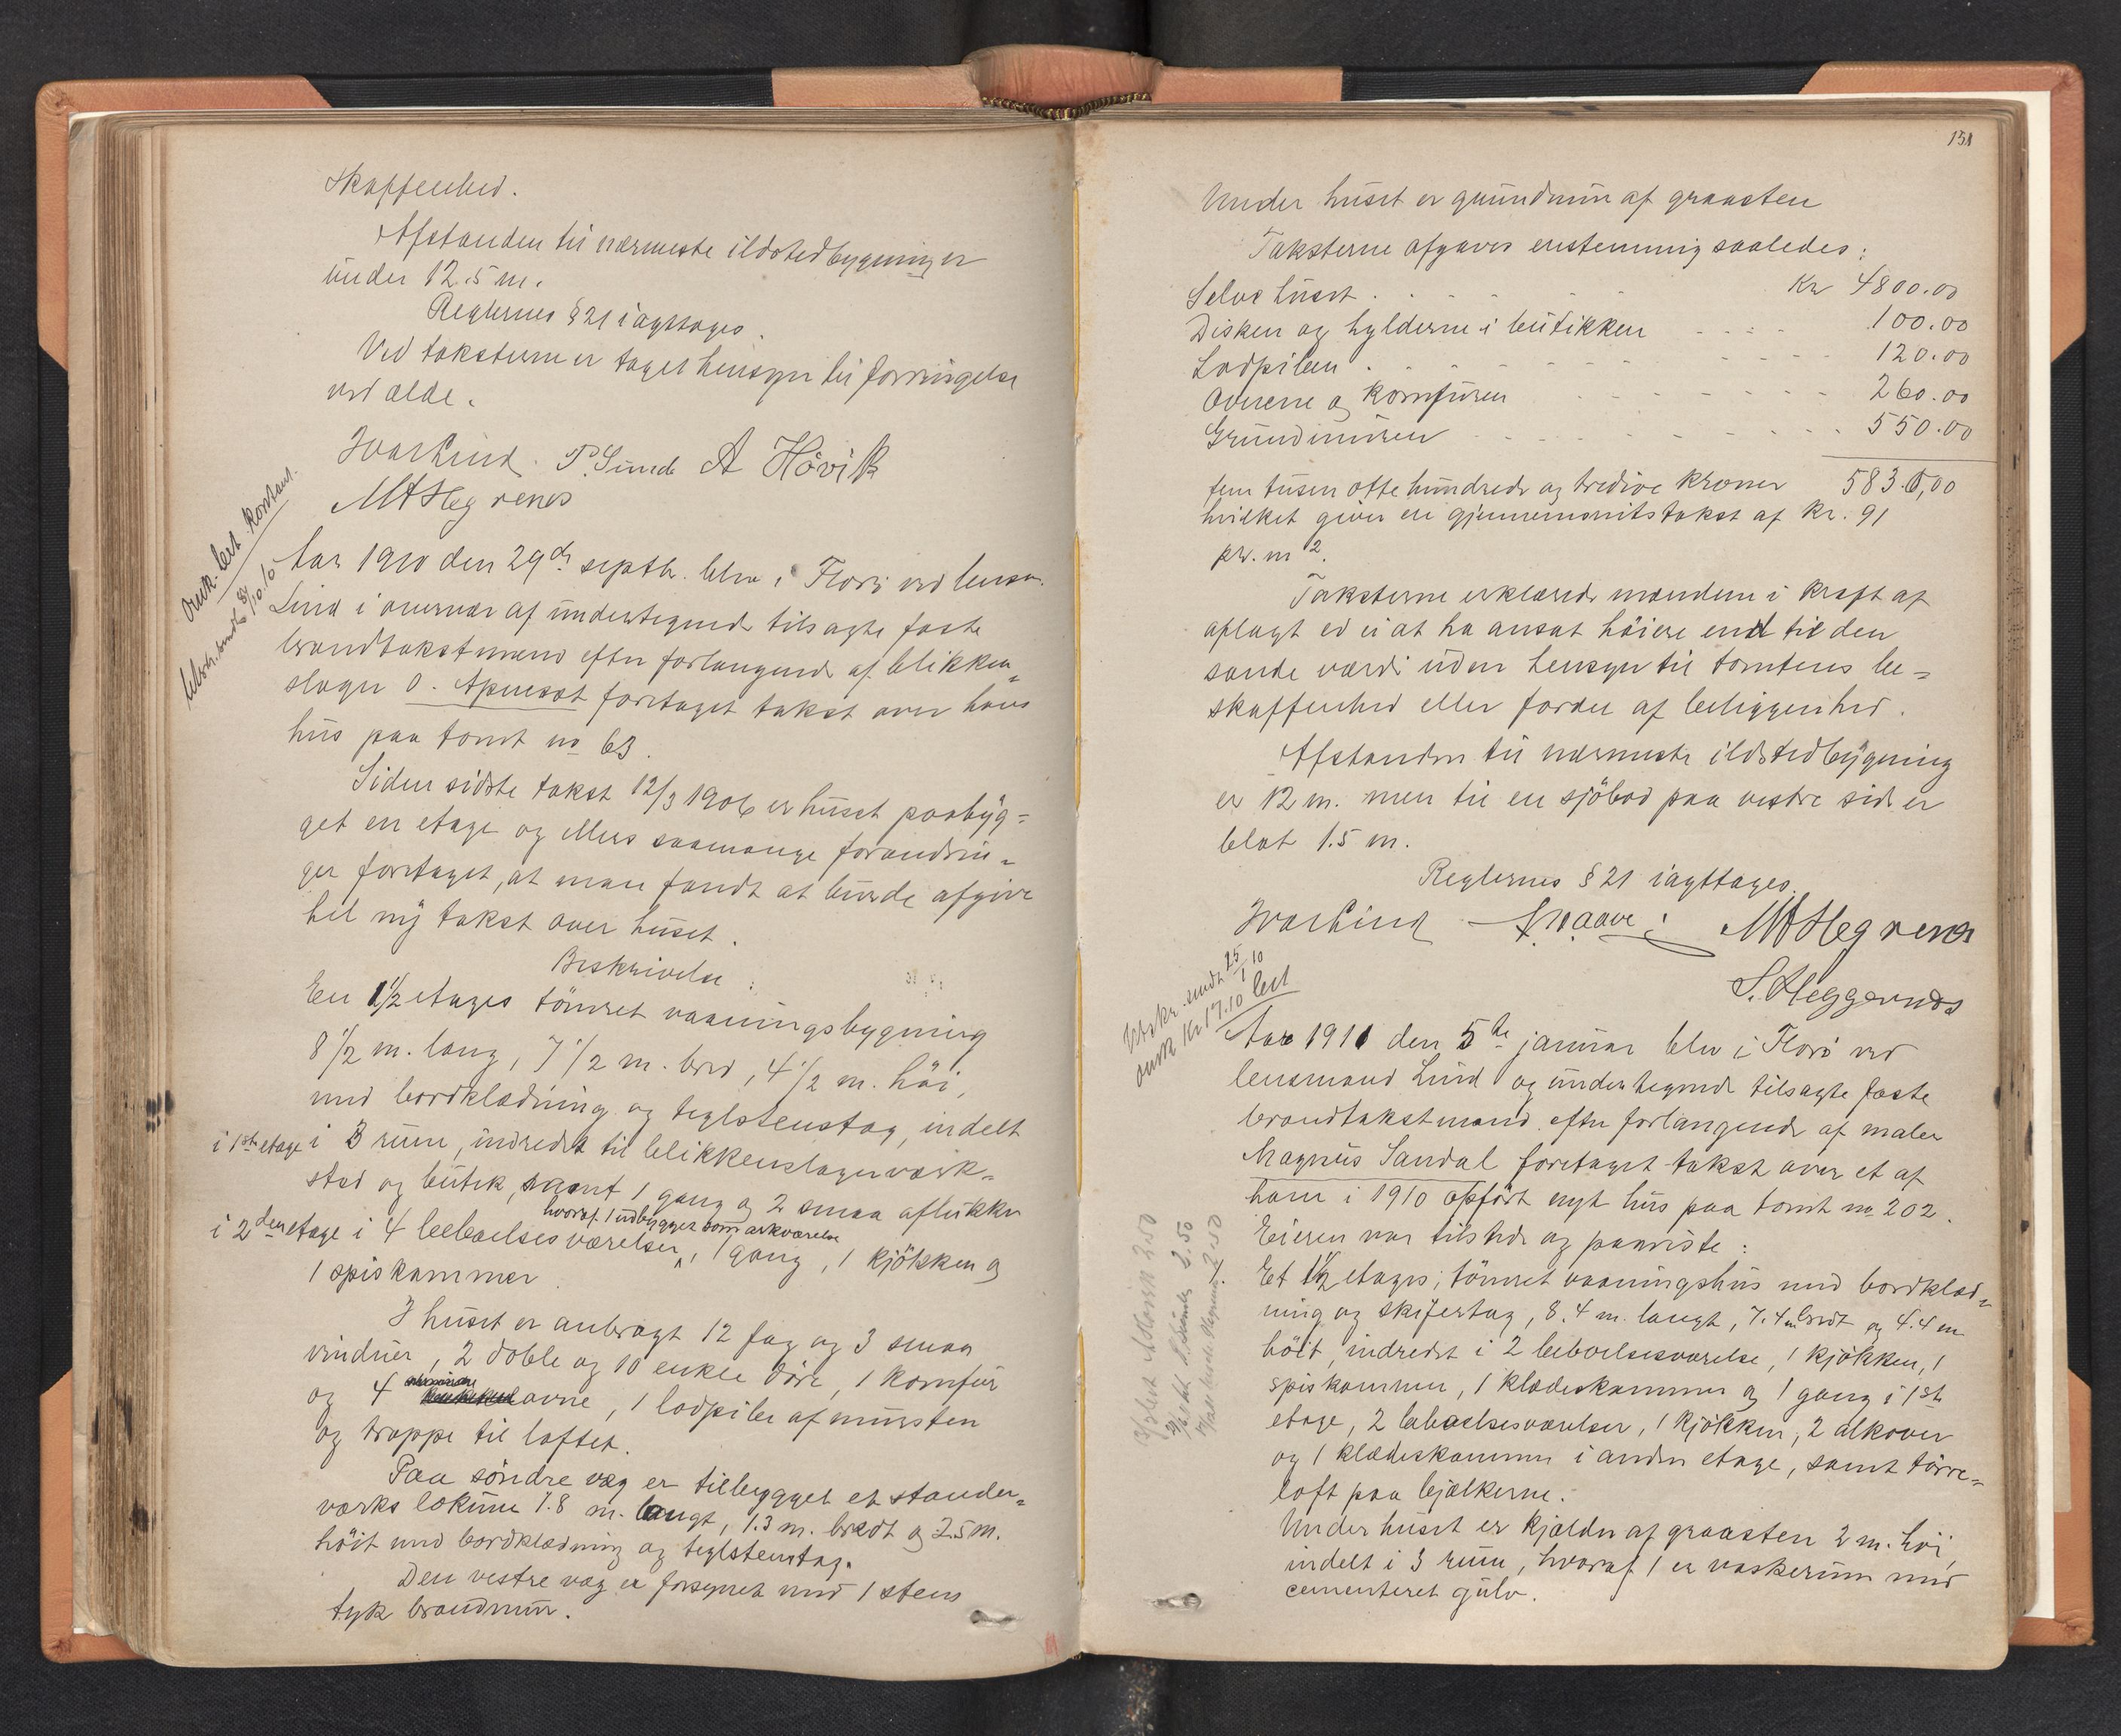 skaffenhed.
Afstanden til nærmeste ildstedbygninger
under 12.5 m.
Reglernes § 21 iagttages.
Ved taksterne er taget hensyn til forringelse
ved ælde.
Ivar Lind. P. Sunde A Hövik
M A Hegrenes
Omk. bet. Kontant.
Utskr. sendt 8/10.10
Aar 1910 den 29de septbr. blev i Florö ved lensm.
Lind i overvær af undertegnede tilsagte faste
brandtakstmænd efter forlangende af blikken=
slager O. Apneset foretaget takst over hans
hus paa tomt no 63.
Siden sidste takst 12/3 1906 er huset paabyg=
get en etage og ellers saamange forandrin=
ger foretaget, at man fandt at burde afgive
hel ny takst over huset.
Beskrivelse:
En 1 1/2 etages tömret vaaningsbygning
8 1/2 m. lang, 7 1/2 m. bred, 4 1/2 m. höi,
med bordklædning og teglstenstag, indelt
i 1ste etage i 3 rum, indredet til blikkenslagerverk=
sted og butik, samt 1 gang og 2 smaa aflukker
hvoraf 1 udbygget som arkværelse
i 2den etage i 4 beboelsesværelser, 1 gang, 1 kjökken og
1 spiskammer
I huset er anbragt 12 fag og 3 smaa
vinduer, 2 doble og 10 enkle döre, 1 komfur
og 4 ovne, 1 lodpibe af mursten
og trappe til loftet.
Paa söndre væg er tilbygget et stander=
værks lokum 1.8 m. langt, 1.3 m. bredt og 2.5 m.
höit med bordklædning og teglstenstag.
Den vestre væg er forsynet med 1 stens
tyk brandmur.
151
Under huset er grundmur af graasten
Taksterne afgaves enstemmig saaledes:
Selve huset . . . . Kr 4800.00
Disken og hylderne i butikken - - - - 100.00
Lodpiben . - - - - 120.00
Ovnene og komfuren - - - - 260.00
Grundmuren - - - - 550.00
fem tusen otte hundrede og tredive kroner 5830,00
hvilket giver en gjennemsnitstakst af kr. 91
pr. m2.
Taksterne erklærede mændene i kraft af
aflagt ed ei at ha ansat höiere end til den
sande værdi uden hensyn til tomtens be=
skaffenhed eller fordel af beliggenhed.
Afstanden til nærmeste ildstedbygning
er 12 m. men til en sjöbod paa vestre side er
blot 1.5 m.
Reglernes § 21 iagttages.
Ivar Lind M A Hegrenes
S. Heggernæs
Utskr. sendt 25/1 10
omk kr 17.10 bet
Aar 1911 den 5te januar blev i Florö ved
lensmand Lind og undertegnede tilsagte faste
brandtakstmænd efter forlangende af maler
Magnus Sandal foretaget takst over et af
ham i 1910 opfört nyt hus paa tomt no 202.
Eieren var tilstede og paaviste:
1. Et 1 1/2 etages, tömret vaaningshus med bordklæd=
ning og skifertag, 8.4 m. langt, 7.4 m bredt og 4.4 m
höit, indredet i 2 beboelsesværelse, 1 kjökken, 1
spiskammer, 1 klædeskammer og 1 gang i 1ste
etage, 2 beboelsesværelser, 1 kjökken, 2 alkover
og 1 klædeskammer i anden etage, samt törre=
loft paa bjælkerne.
Under huset er kjælder af graasten 2 m. höi,
indelt i 3 rum, hvoraf 1 er vaskerum med
cementeret gulv.